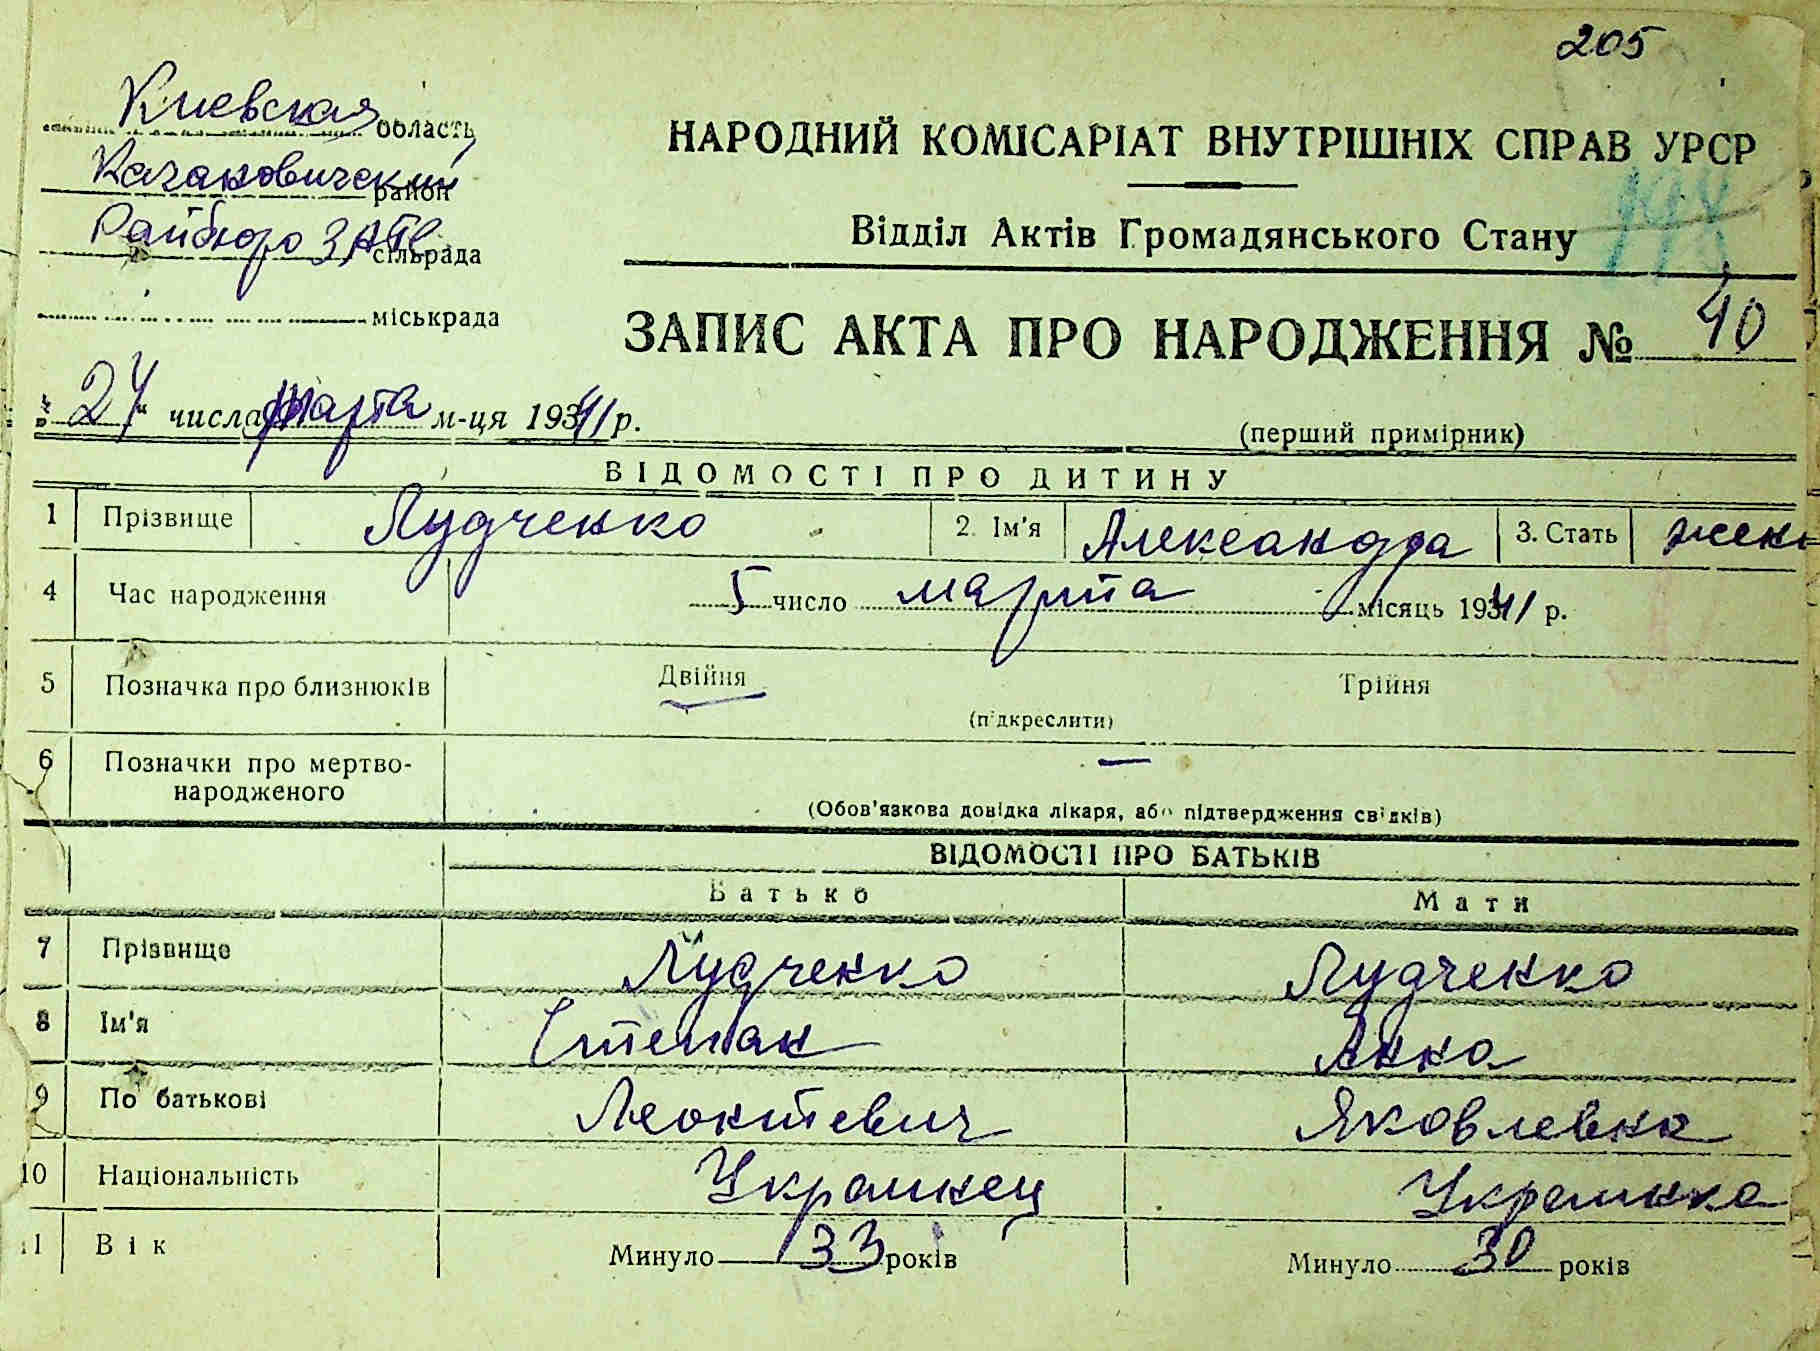 205
Киевская область
НАРОДНИЙ КОМІСАРІАТ ВНУТРІШНІХ СПРАВ УРСР
Кагановический район
198
Райбюро ЗАГС сільрада
Відділ Актів Громадянського Стану
міськрада
ЗАПИС АКТА ПРО НАРОДЖЕННЯ № 40
„24“ числа марта м-ця 1941 р.
(перший примірник)
ВІДОМОСТІ ПРО ДИТИНУ
1 Прізвище Лудченко 2. Ім'я Александра 3. Стать жен
4 Час народження 5 число марта місяць 1941 р.
5 Позначка про близнюків Двійня Трійня
(підкреслити)
6 Позначки про мертво- —
народженого
(Обов'язкова довідка лікаря, або підтвердження свідків)
ВІДОМОСТІ ПРО БАТЬКІВ
Батько Мати
7 Прізвище Лудченко Лудченко
8 Ім'я Степан Анна
9 По батькові Леонтевич Яковлевна
10 Національність Украинец Украинка
11 Вік Минуло 33 років Минуло 30 років